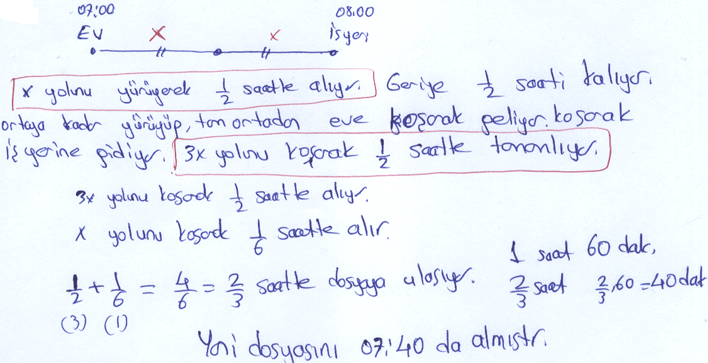 07:00 08.00
EV x x işyeri
x yolunu yürüyerek 1/2 saatte alıyor. Geriye 1/2 saati kalıyor.
ortaya kadar yürüyüp, tam ortadan eve koşarak geliyor. koşarak
iş yerine gidiyor. 3x yolunu koşarak 1/2 saatte tamamlıyor.
3x yolunu koşarak 1/2 saatte alıyor.
x yolunu koşarak 1/6 saatte alır.
1 saat 60 dak,
1/2 + 1/6 = 4/6 = 2/3 saatte dosyaya ulaşıyor. 2/3 saat 2/3.60=40 dak
(3) (1)
Yani dosyasını 07:40 da almıştır.